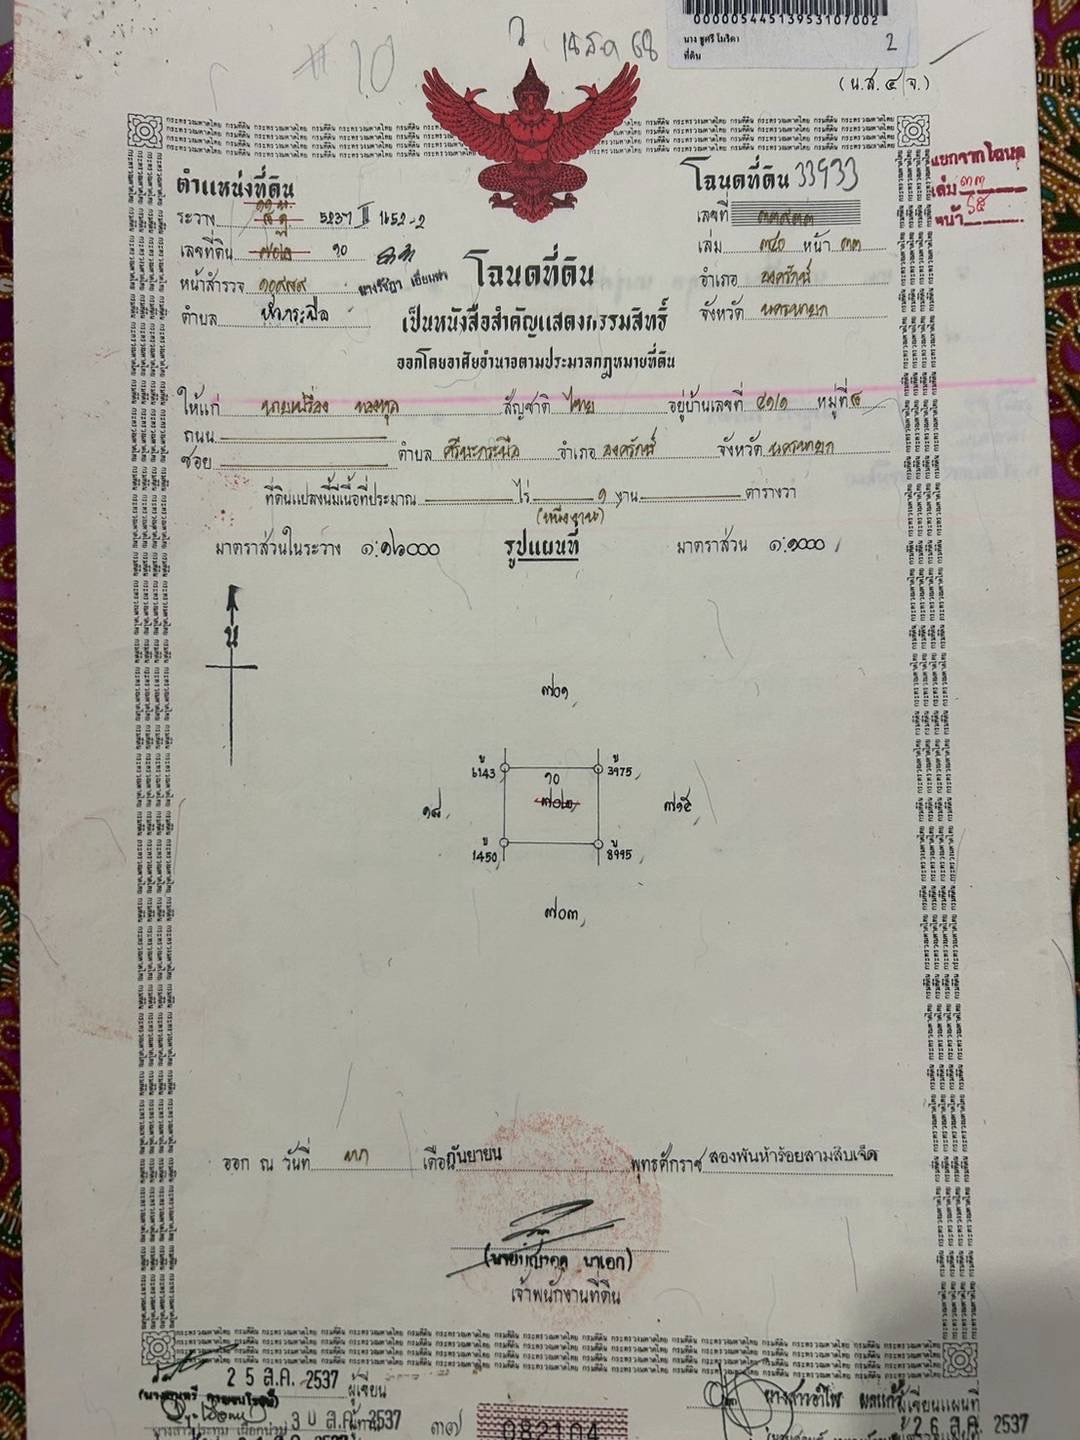 00000544513953107002
นาง ชูศรี โมริดา
ที่ดิน
2
# 10
14 ส.ค 68
(น.ส. ๔ จ.)
แยกจากโฉนด
เล่ม ๓๓
หน้า ๖๕
ตำแหน่งที่ดิน
ระวาง 5237 III 1652-2
เลขที่ดิน ๗๐๒ ๑๐
หน้าสำรวจ ๑๐๙๗๙
ตำบล
โฉนดที่ดิน 33933
เลขที่ ๓๓๙๓๓
เล่ม ๓๔๐ หน้า ๓๓
อำเภอ องครักษ์
จังหวัด นครนายก
โฉนดที่ดิน
เป็นหนังสือสำคัญแสดงกรรมสิทธิ์
ออกโดยอาศัยอำนาจตามประมวลกฎหมายที่ดิน
ให้แก่ สัญชาติ ไทย อยู่บ้านเลขที่ ๔๑/๑ หมู่ที่ ๕
ถนน
ซอย ตำบล ศรีษะกระบือ อำเภอ องครักษ์ จังหวัด นครนายก
ที่ดินแปลงนี้มีเนื้อที่ประมาณ ไร่ ๑ งาน ตารางวา
(หนึ่งงาน)
มาตราส่วนในระวาง ๑:๑๖๐๐๐ รูปแผนที่ มาตราส่วน ๑:๑๐๐๐
น
๗๐๑
บ 6143
บ 3975
๑๐
๗๐๒
๑๘
๗๑๕
บ 1450
บ 8995
๗๐๓
ออก ณ วันที่ เดือน กันยายน พุทธศักราช สองพันห้าร้อยสามสิบเจ็ด
เจ้าพนักงานที่ดิน
25 ส.ค. 2537 ผู้เขียน
30 ส.ค. 2537
๓๗
082104
นางสาวอำไพ ผู้เขียนแผนที่
26 ส.ค. 2537